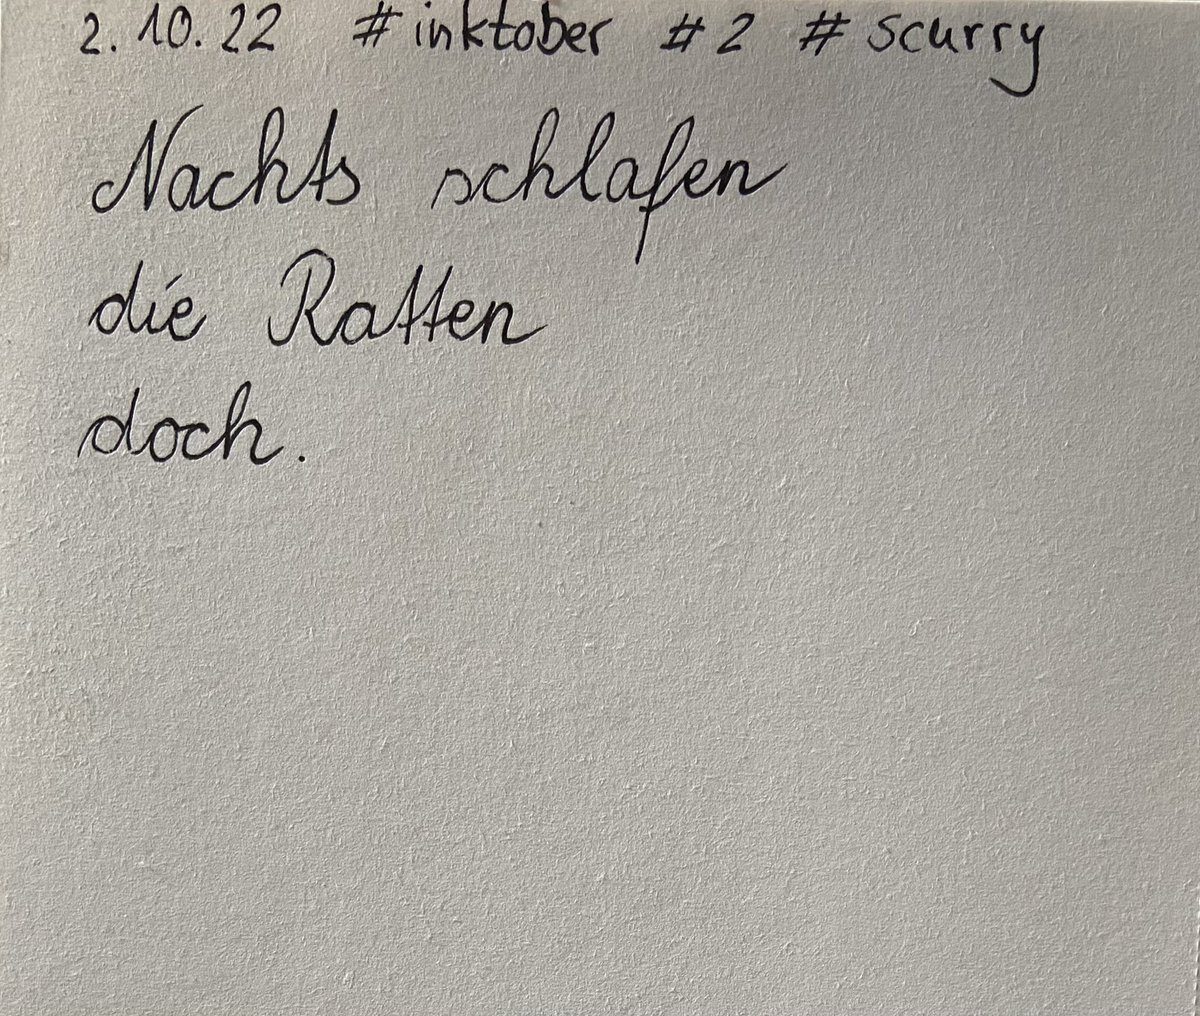 2.10.22 #inktober #2 #scurry
Nachts schlafen
die Ratten
doch.